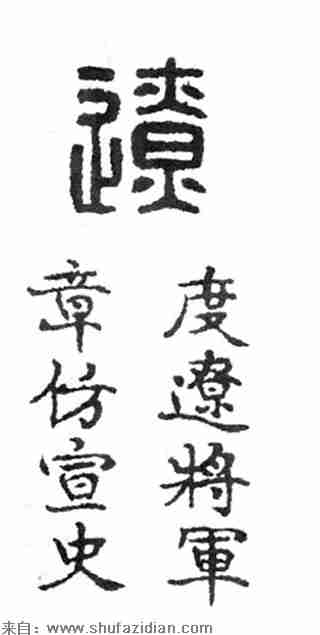 遼
度遼將軍
章仿宣史
来自：www.shufazidian.com